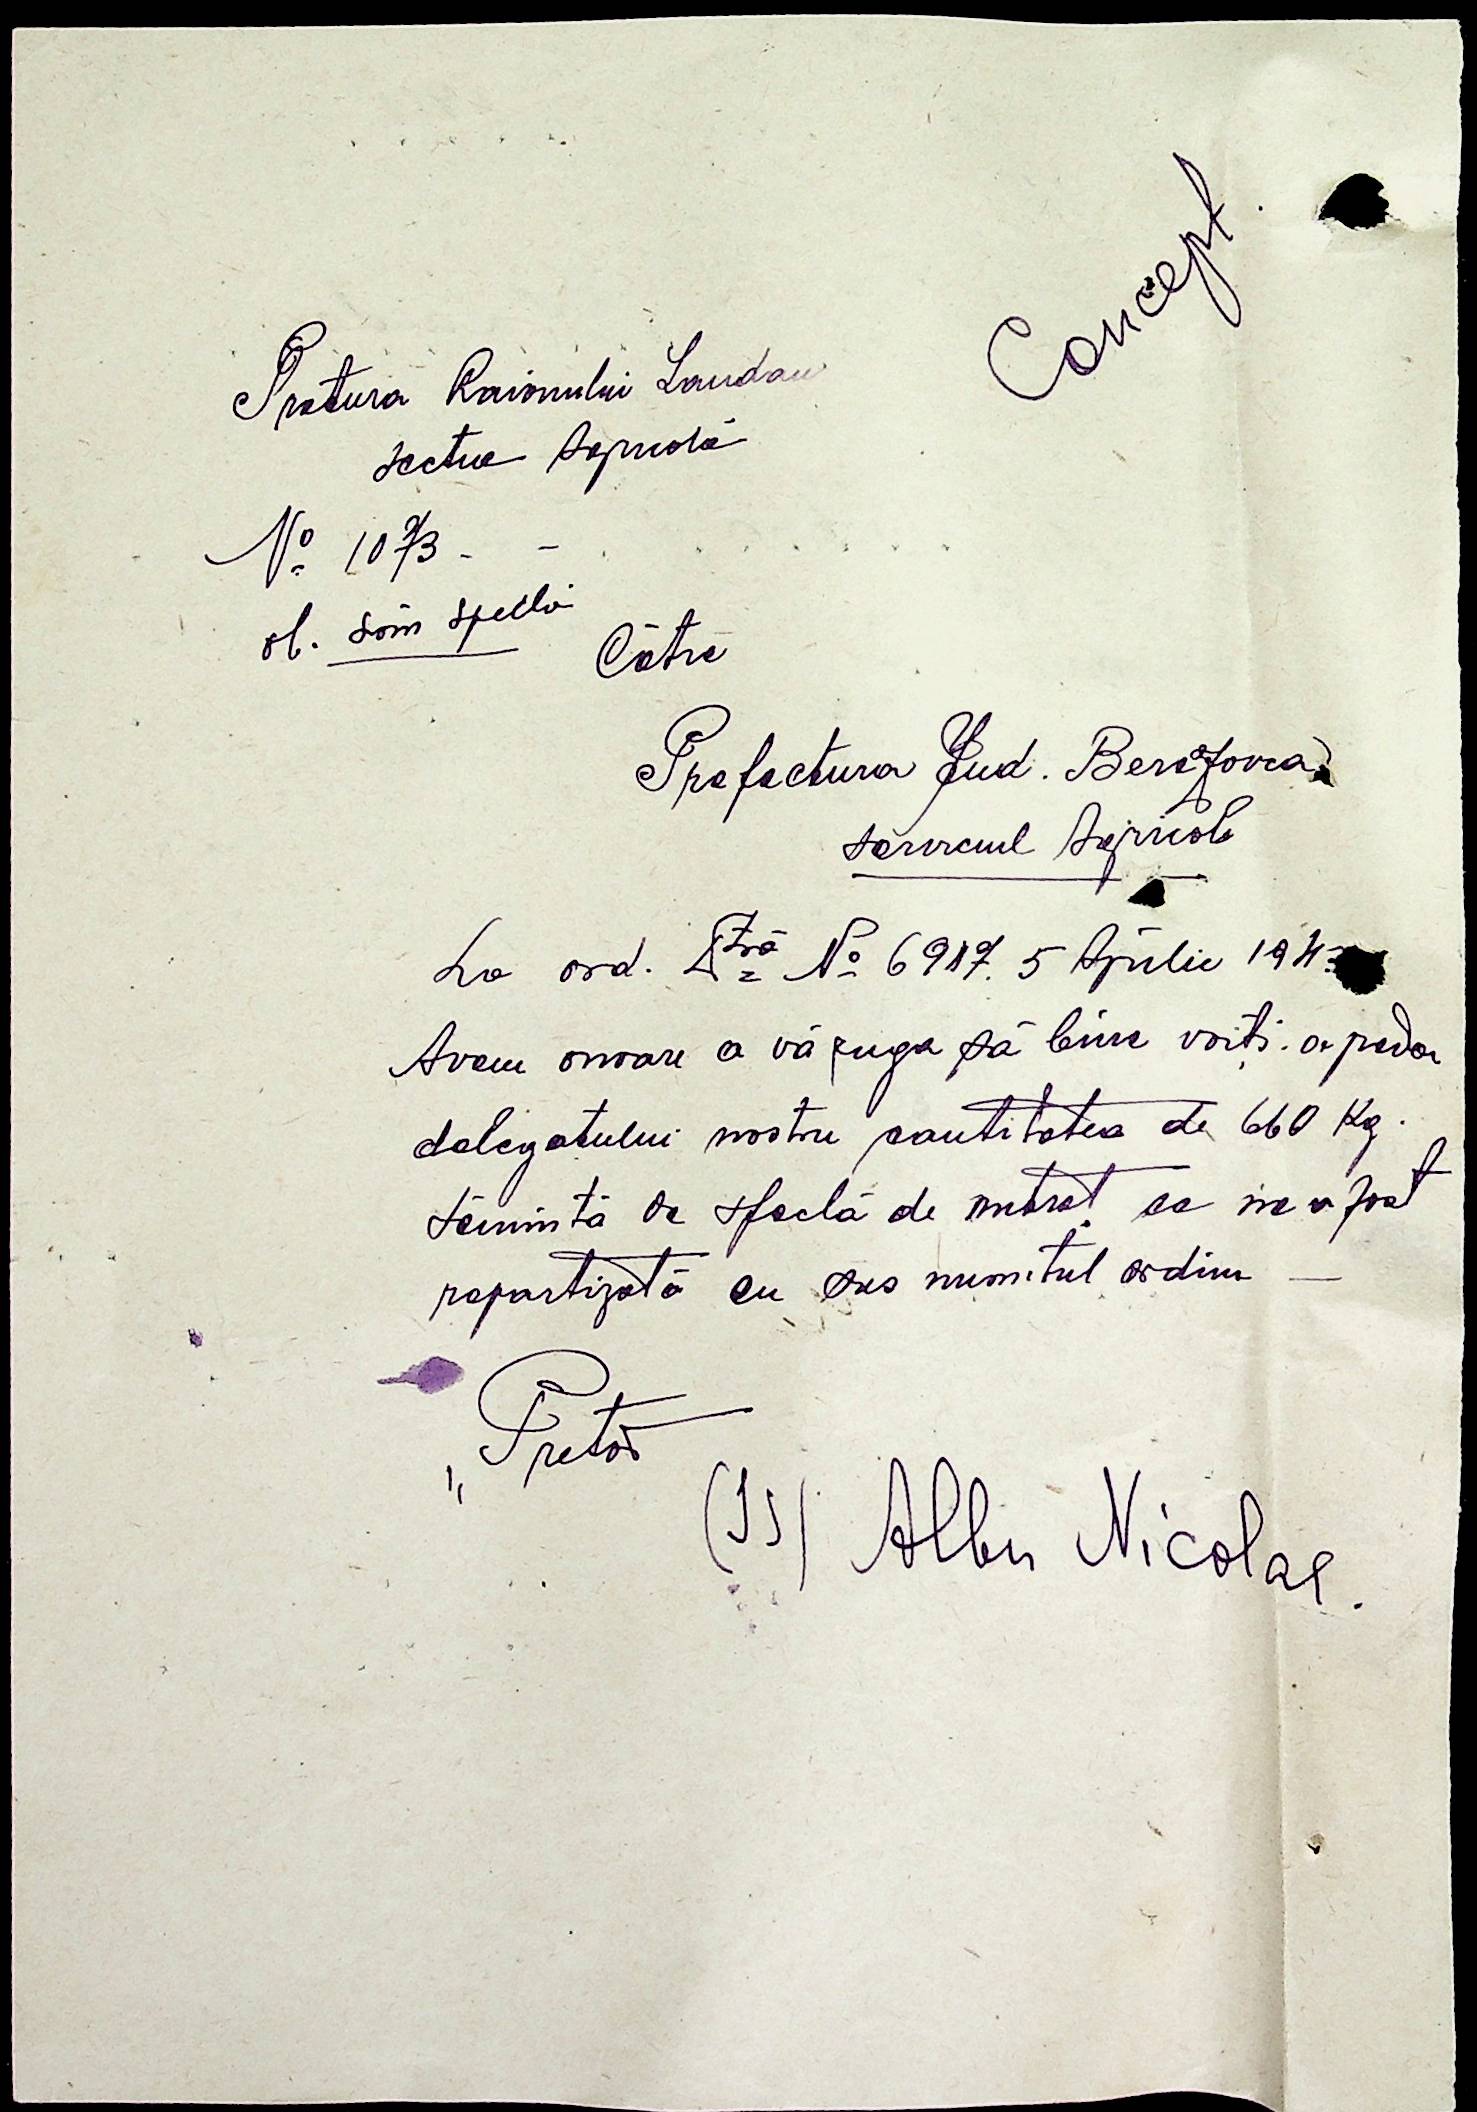 Concept.
Pretura Raionului Landau
Sectia Agricolă
No 1073 - -
ob. săm sfeclă
Către
Prefectura Jud. Berezovca
Serviciul Agricol
La ord. Dvoastră No 6917. 5 Aprilie 194
Avem onoare a vă ruga să bine voiți. a preda
delegatului nostru cantitatea de 660 Kg.
sămintă de sfeclă de nutreț ce ne a fost
repartizată cu sus numitul ordin —
Pretor
(SS) Albu Nicolae.